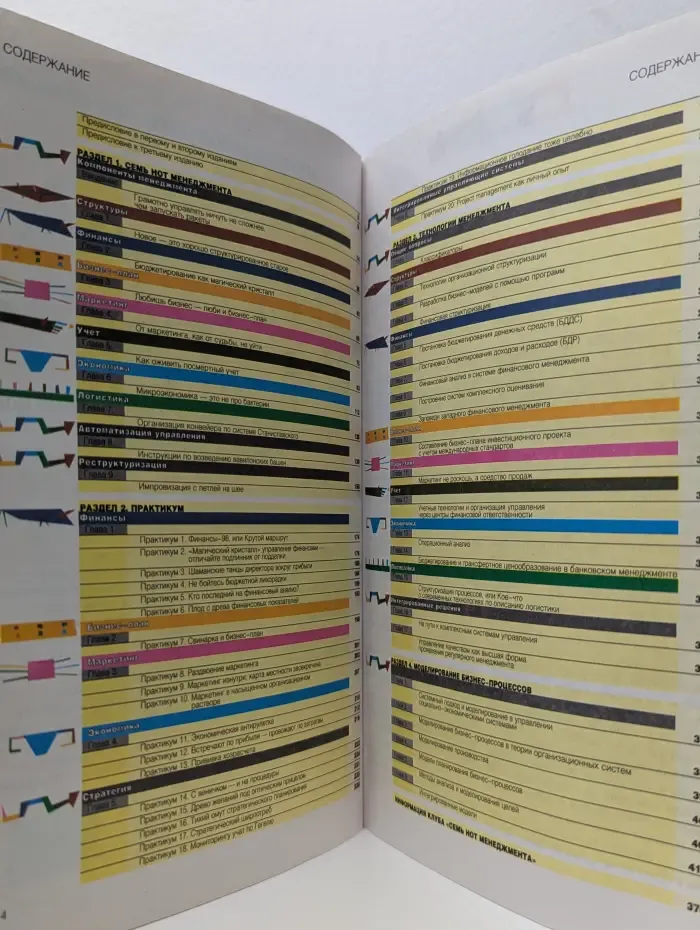 СОДЕРЖАНИЕ
Предисловие к первому и второму изданиям
Предисловие к третьему изданию
РАЗДЕЛ 1. СЕМЬ НОТ МЕНЕДЖМЕНТА
Компоненты менеджмента
Грамотно управлять ничуть не сложнее,
чем запускать ракеты
Структуры
Глава 1
Новое — это хорошо структурированное старое
Финансы
Глава 2
Бюджетирование как магический кристалл
Бизнес-план
Глава 3
Любишь бизнес — люби и бизнес-план
Маркетинг
Глава 4
От маркетинга, как от судьбы, не уйти
Учет
Глава 5
Как оживить посмертный учет
Экономика
Глава 6
Микроэкономика — это не про бактерии
Логистика
Глава 7
Организация конвейера по системе Станиславского
Автоматизация управления
Глава 8
Инструкции по возведению вавилонских башен
Реструктуризация
Глава 9
Импровизация с петлей на шее
РАЗДЕЛ 2. ПРАКТИКУМ
Финансы
Глава 1
Практикум 1. Финансы-98, или Крутой маршрут
Практикум 2. «Магический кристалл» управление финансами —
отличайте подлинник от подделки
Практикум 3. Шаманские танцы директора вокруг прибыли
Практикум 4. Не бойтесь бюджетной лихорадки
Практикум 5. Кто последний на финансовый анализ?
Практикум 6. Плод с древа финансовых показателей
Бизнес-план
Глава 2
Практикум 7. Свинарка и бизнес-план
Маркетинг
Глава 3
Практикум 8. Раздвоение маркетинга
Практикум 9. Маркетинг изнутри: карта местности засекречена
Практикум 10. Маркетинг в насыщенном организационном
растворе
Экономика
Глава 4
Практикум 11. Экономическая антирулетка
Практикум 12. Встречают по прибыли — провожают по затратам
Практикум 13. Прививка хозрасчета
Стратегия
Глава 5
Практикум 14. С веничком — и на процедуры
Практикум 15. Древо желаний под оптическим прицелом
Практикум 16. Тихий омут стратегического планирования
Практикум 17. Стратегический ширпотреб
Практикум 18. Мониторингу учат по Гегелю
4
Практикум 19. Информационное голодание тоже целебно
Интегрированные управляющие системы
Практикум 20. Project management как личный опыт
РАЗДЕЛ 3. ТЕХНОЛОГИИ МЕНЕДЖМЕНТА
Общие вопросы
Классификаторы
Структуры
Технологии организационной структуризации
Разработка бизнес-моделей с помощью программ
Финансовая структуризация
Финансы
Постановка бюджетирования денежных средств (БДДС)
Постановка бюджетирования доходов и расходов (БДР)
Финансовый анализ в системе финансового менеджмента
Построение систем комплексного оценивания
Заповеди западного финансового менеджмента
Составление бизнес-плана инвестиционного проекта
с учетом международных стандартов
Маркетинг
Маркетинг не роскошь, а средство продаж
Учет
Учетные технологии и организация управления
через центры финансовой ответственности
Экономика
Операционный анализ
Бюджетирование и трансфертное ценообразование в банковском менеджменте
Логистика
Структуризация процессов, или Кое-что
о современных технологиях по описанию логистики
Интегрированные решения
На пути к комплексным системам управления
Управление качеством как высшая форма
проявления регулярного менеджмента
РАЗДЕЛ 4. МОДЕЛИРОВАНИЕ БИЗНЕС-ПРОЦЕССОВ
Системный подход к моделированию в управлении
социально-экономическими системами
Моделирование бизнес-процессов в теории организационных систем
Моделирование производства
Модели планирования бизнес-процессов
Методы анализа и моделирования целей
Интегрированные модели
ИНФОРМАЦИЯ КЛУБА «СЕМЬ НОТ МЕНЕДЖМЕНТА»